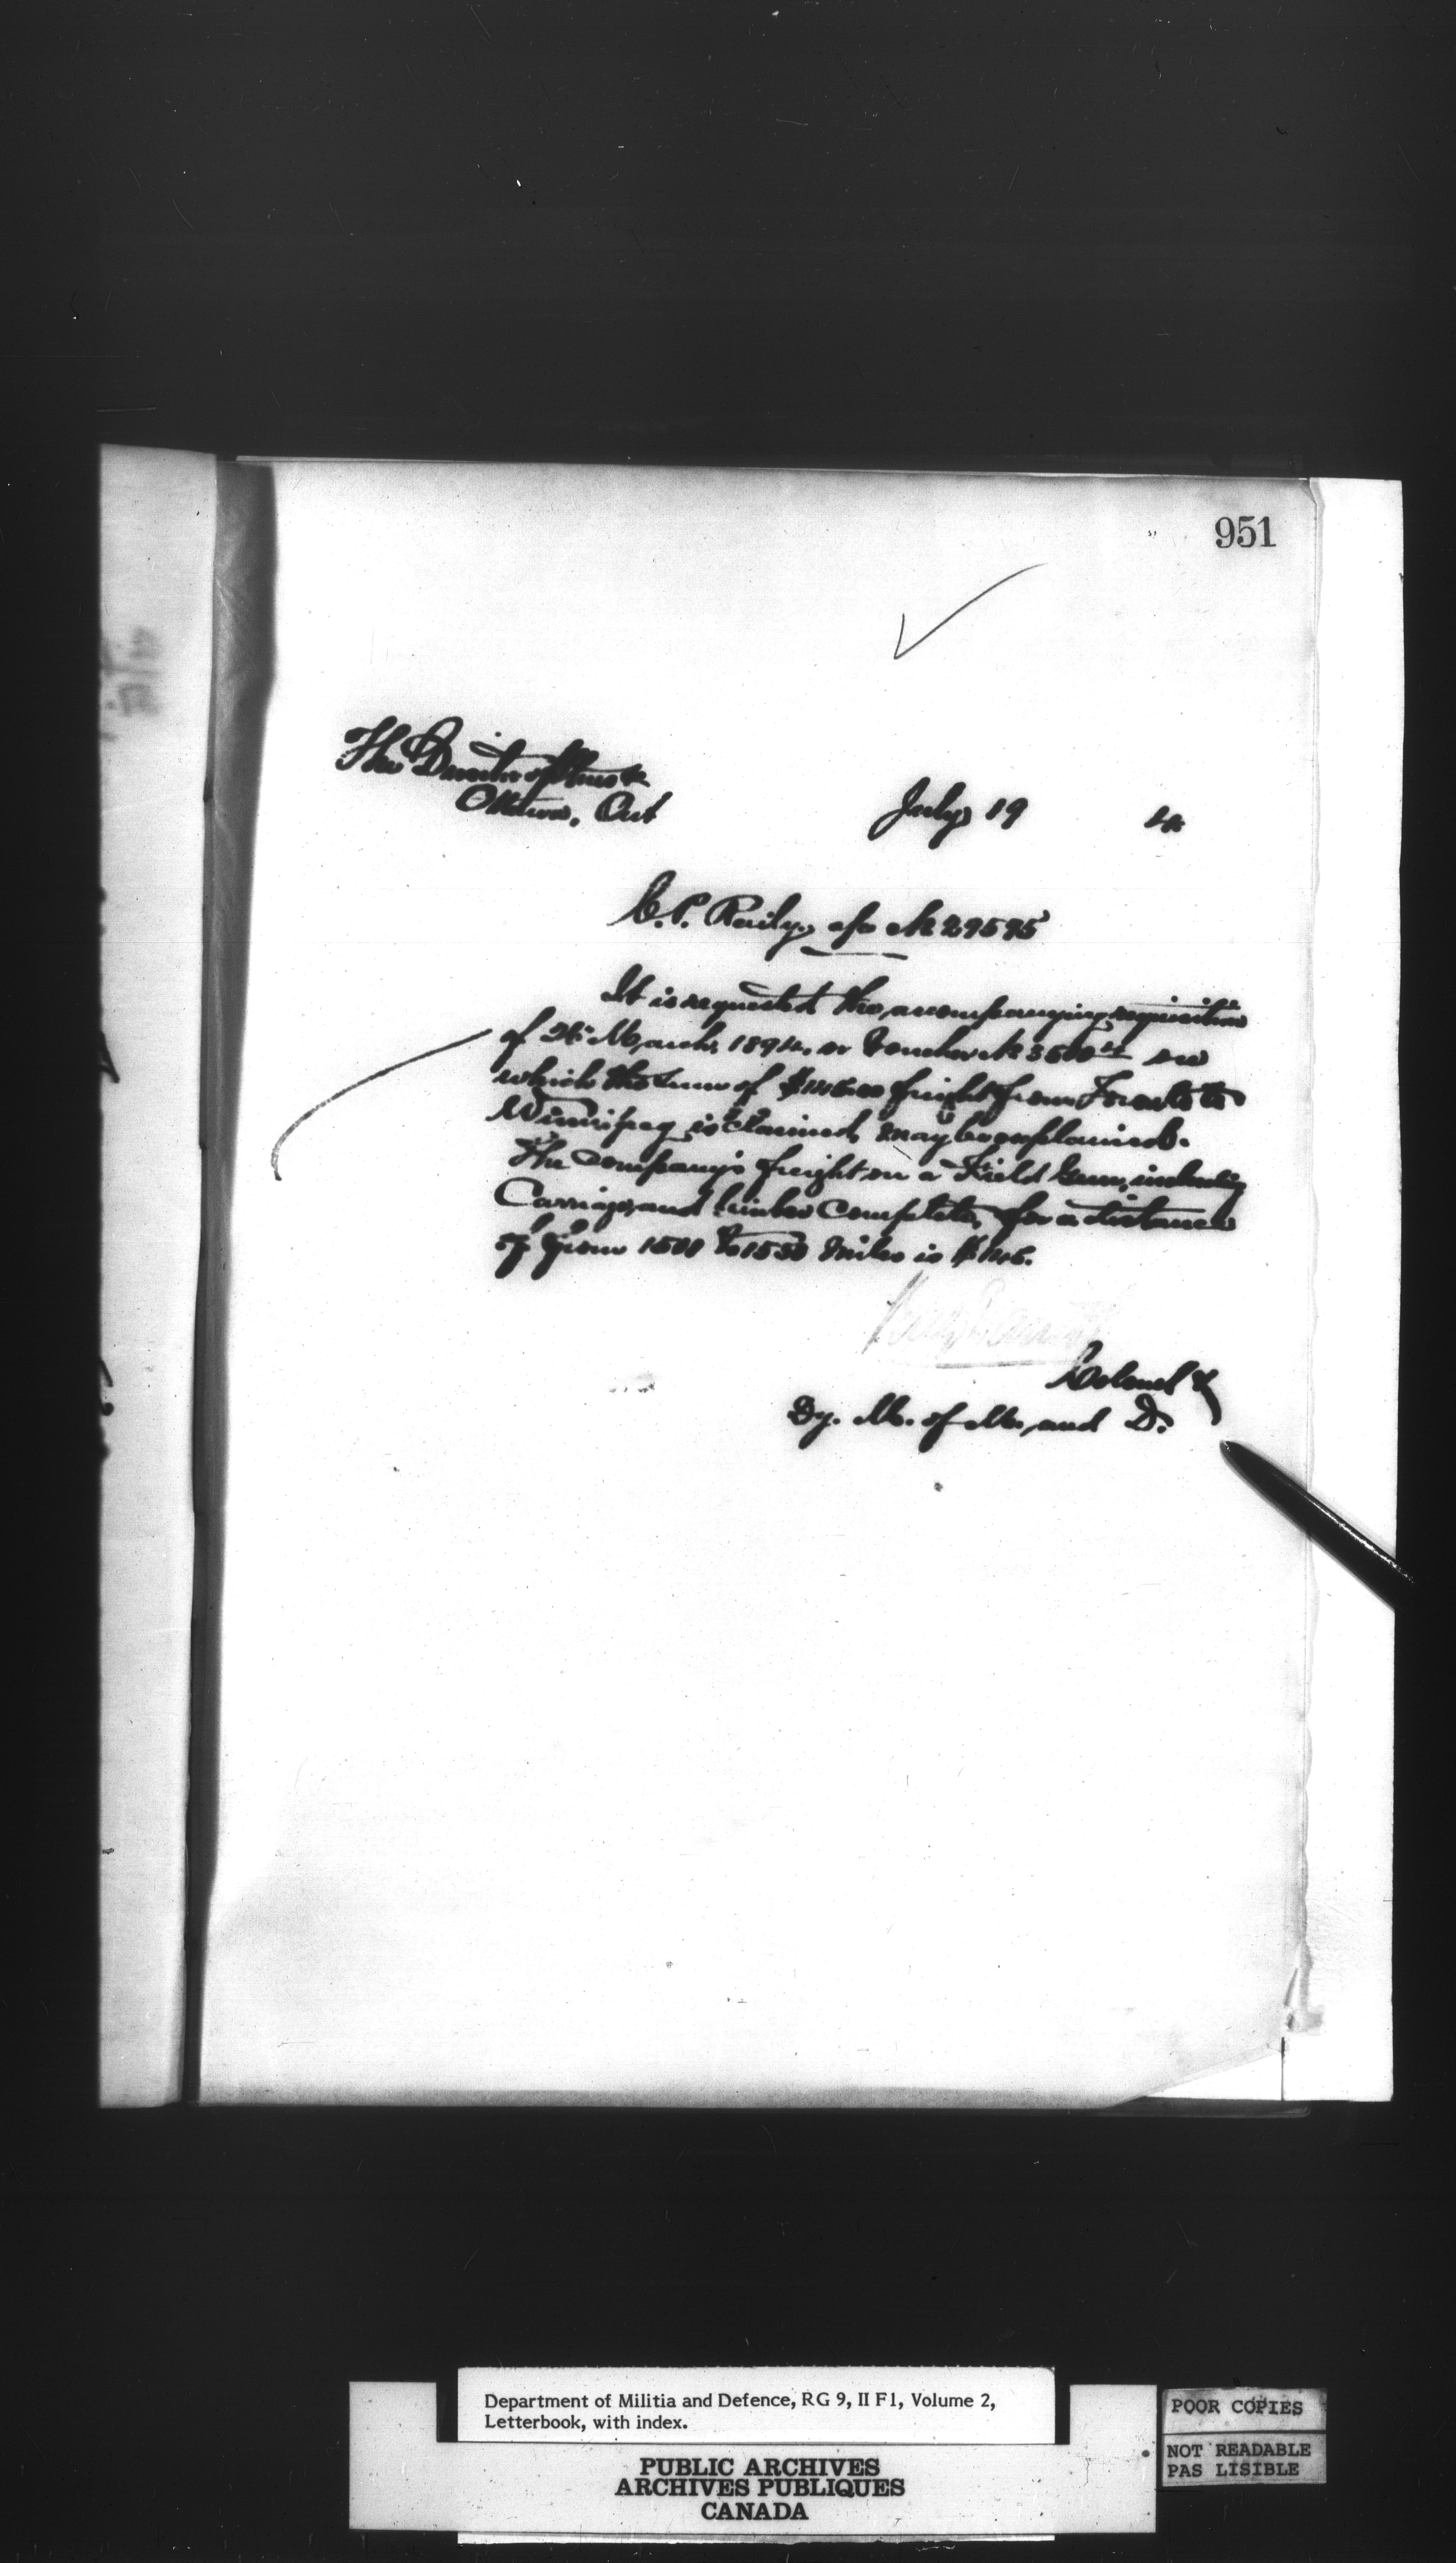 951
The Director of Stores
Ottawa, Ont
July 19 4
C.P. Raily. a/c No 29595
It is requested the accompanying requisition
of March, 1894, or Voucher No on
which the sum of freight from Toronto to
Winnipeg is claimed, may be explained.
The Company's freight on a Field Gun, including
Carriage, and limber complete, for a distance
of from 1501 to 1550 miles is
Colonel &
Dy. M. of M. and D.
Department of Militia and Defence, RG 9, II F1, Volume 2,
Letterbook, with index.
PUBLIC ARCHIVES
ARCHIVES PUBLIQUES
CANADA
POOR COPIES
NOT READABLE
PAS LISIBLE